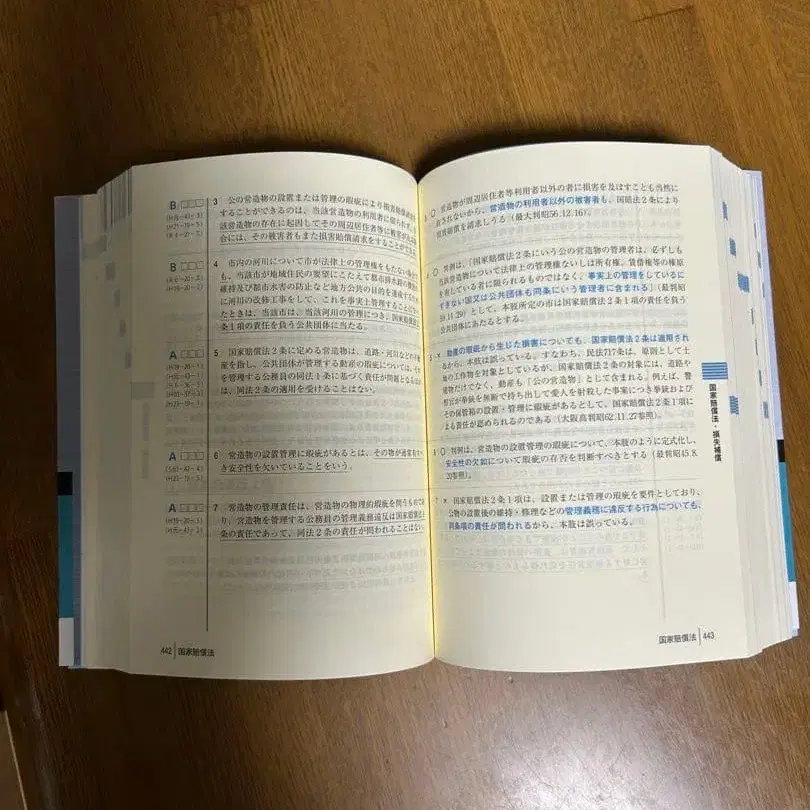 B □□□
3 公の営造物の設置または管理の瑕疵により損害賠償請求を
することができるのは、当該営造物の利用者に限られず、
該営造物の存在に起因してその周辺居住者等に被害が
合には、その被害者もまた損害賠償請求をすることができる。
B □□□
4 市内の河川について市が法律上の管理権をもたない場合で
も、当該市が地域住民の要望にこたえて都市排水路の機能の
維持及び都市水害の防止など地方公共の目的を達成するため
に河川の改修工事をして、これを事実上管理することになっ
たときは、当該市は、当該河川の管理につき、国家賠償法2
条1項の責任を負う公共団体に当たる。
A □□□
5 国家賠償法2条に定める営造物は、道路・河川などの不動
産を指し、公共団体が管理する動産の瑕疵については、それ
を管理する公務員の同法1条に基づく責任が問題となるほか
は、同法2条の適用を受けることはない。
A □□□
6 営造物の設置管理に瑕疵があるとは、その物が通常有すべ
き安全性を欠いていることをいう。
A □□□
7 営造物の管理責任は、営造物の物理的瑕疵を問うものであ
り、営造物を管理する公務員の管理義務違反は国家賠償法1
条の責任であって、同法2条の責任が問われることはない。
442 国家賠償法
3 ○ 営造物が周辺居住者等利用者以外の者に損害を及ぼすことも当然に
されないから、営造物の利用者以外の被害者も、国賠法2条により
損害賠償を請求しうる（最大判昭56.12.16）。
4 ○ 判例は、「国家賠償法2条にいう公の営造物の管理者は、必ずしも
当該営造物について法律上の管理権ないしは所有権、賃借権等の権原
を有している者に限られるものではなく、事実上の管理をしているに
すぎない国又は公共団体も同条にいう管理者に含まれる」（最判昭
59.11.29）として、本肢所定の市は国家賠償法2条1項の責任を負う
公共団体にあたるとする。
5 × 動産の瑕疵から生じた損害についても、国家賠償法2条は適用され
るから、本肢は誤っている。すなわち、民法717条は、原則として土
地の工作物を対象としているが、国家賠償法2条の対象には、道路や
建物だけでなく、動産も「公の営造物」として含まれる。例えば、警
察官が拳銃を無断で持ち出して愛人を射殺した事案につき拳銃および
その保管箱の設置・管理に瑕疵があるとして、国家賠償法2条1項に
よる責任が認められるのである（大阪高判昭62.11.27参照）。
6 ○ 判例は、営造物の設置管理の瑕疵について、本肢のように定式化し、
安全性の欠如について瑕疵の存否を判断すべきとする（最判昭45.8.
20参照）。
7 × 国家賠償法2条1項は、設置または管理の瑕疵を要件としており、
公物の設置後の維持・修理などの管理義務に違反する行為についても、
同条項の責任が問われるから、本肢は誤っている。
国家賠償法・損失補償
国家賠償法 443